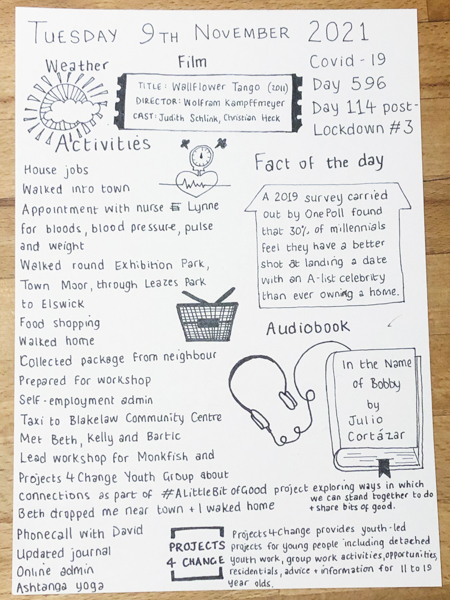 TUESDAY 9TH NOVEMBER 2021
Weather
Film
TITLE: Wallflower Tango (2011)
DIRECTOR: Wolfram Kampffmeyer
CAST: Judith Schlink, Christian Heck
Covid-19
Day 596
Day 114 post-
Lockdown #3
Activities
House jobs
Walked into town
Appointment with nurse Lynne
for bloods, blood pressure, pulse
and weight
Walked round Exhibition Park,
Town Moor, through Leazes Park
to Elswick
Food shopping
Walked home
Collected package from neighbour
Prepared for workshop
Self-employment admin
Taxi to Blakelaw Community Centre
Met Beth, Kelly and Bartic
Lead workshop for Monkfish and
Projects 4 Change Youth Group about
connections as part of #ALittleBitofGood project exploring ways in which
we can stand together to do
+ share bits of good.
Beth dropped me near town + I walked home
Phonecall with David
Updated journal
Online admin
Ashtanga yoga
Fact of the day
A 2019 survey carried
out by OnePoll found
that 30% of millennials
feel they have a better
shot at landing a date
with an A-list celebrity
than ever owning a home.
Audiobook
In the Name
of Bobby
by
Julio
Cortázar
PROJECTS
4 CHANGE
Projects4Change provides youth-led
projects for young people including detached
youth work, group work activities, opportunities,
residentials, advice + information for 11 to 19
year olds.